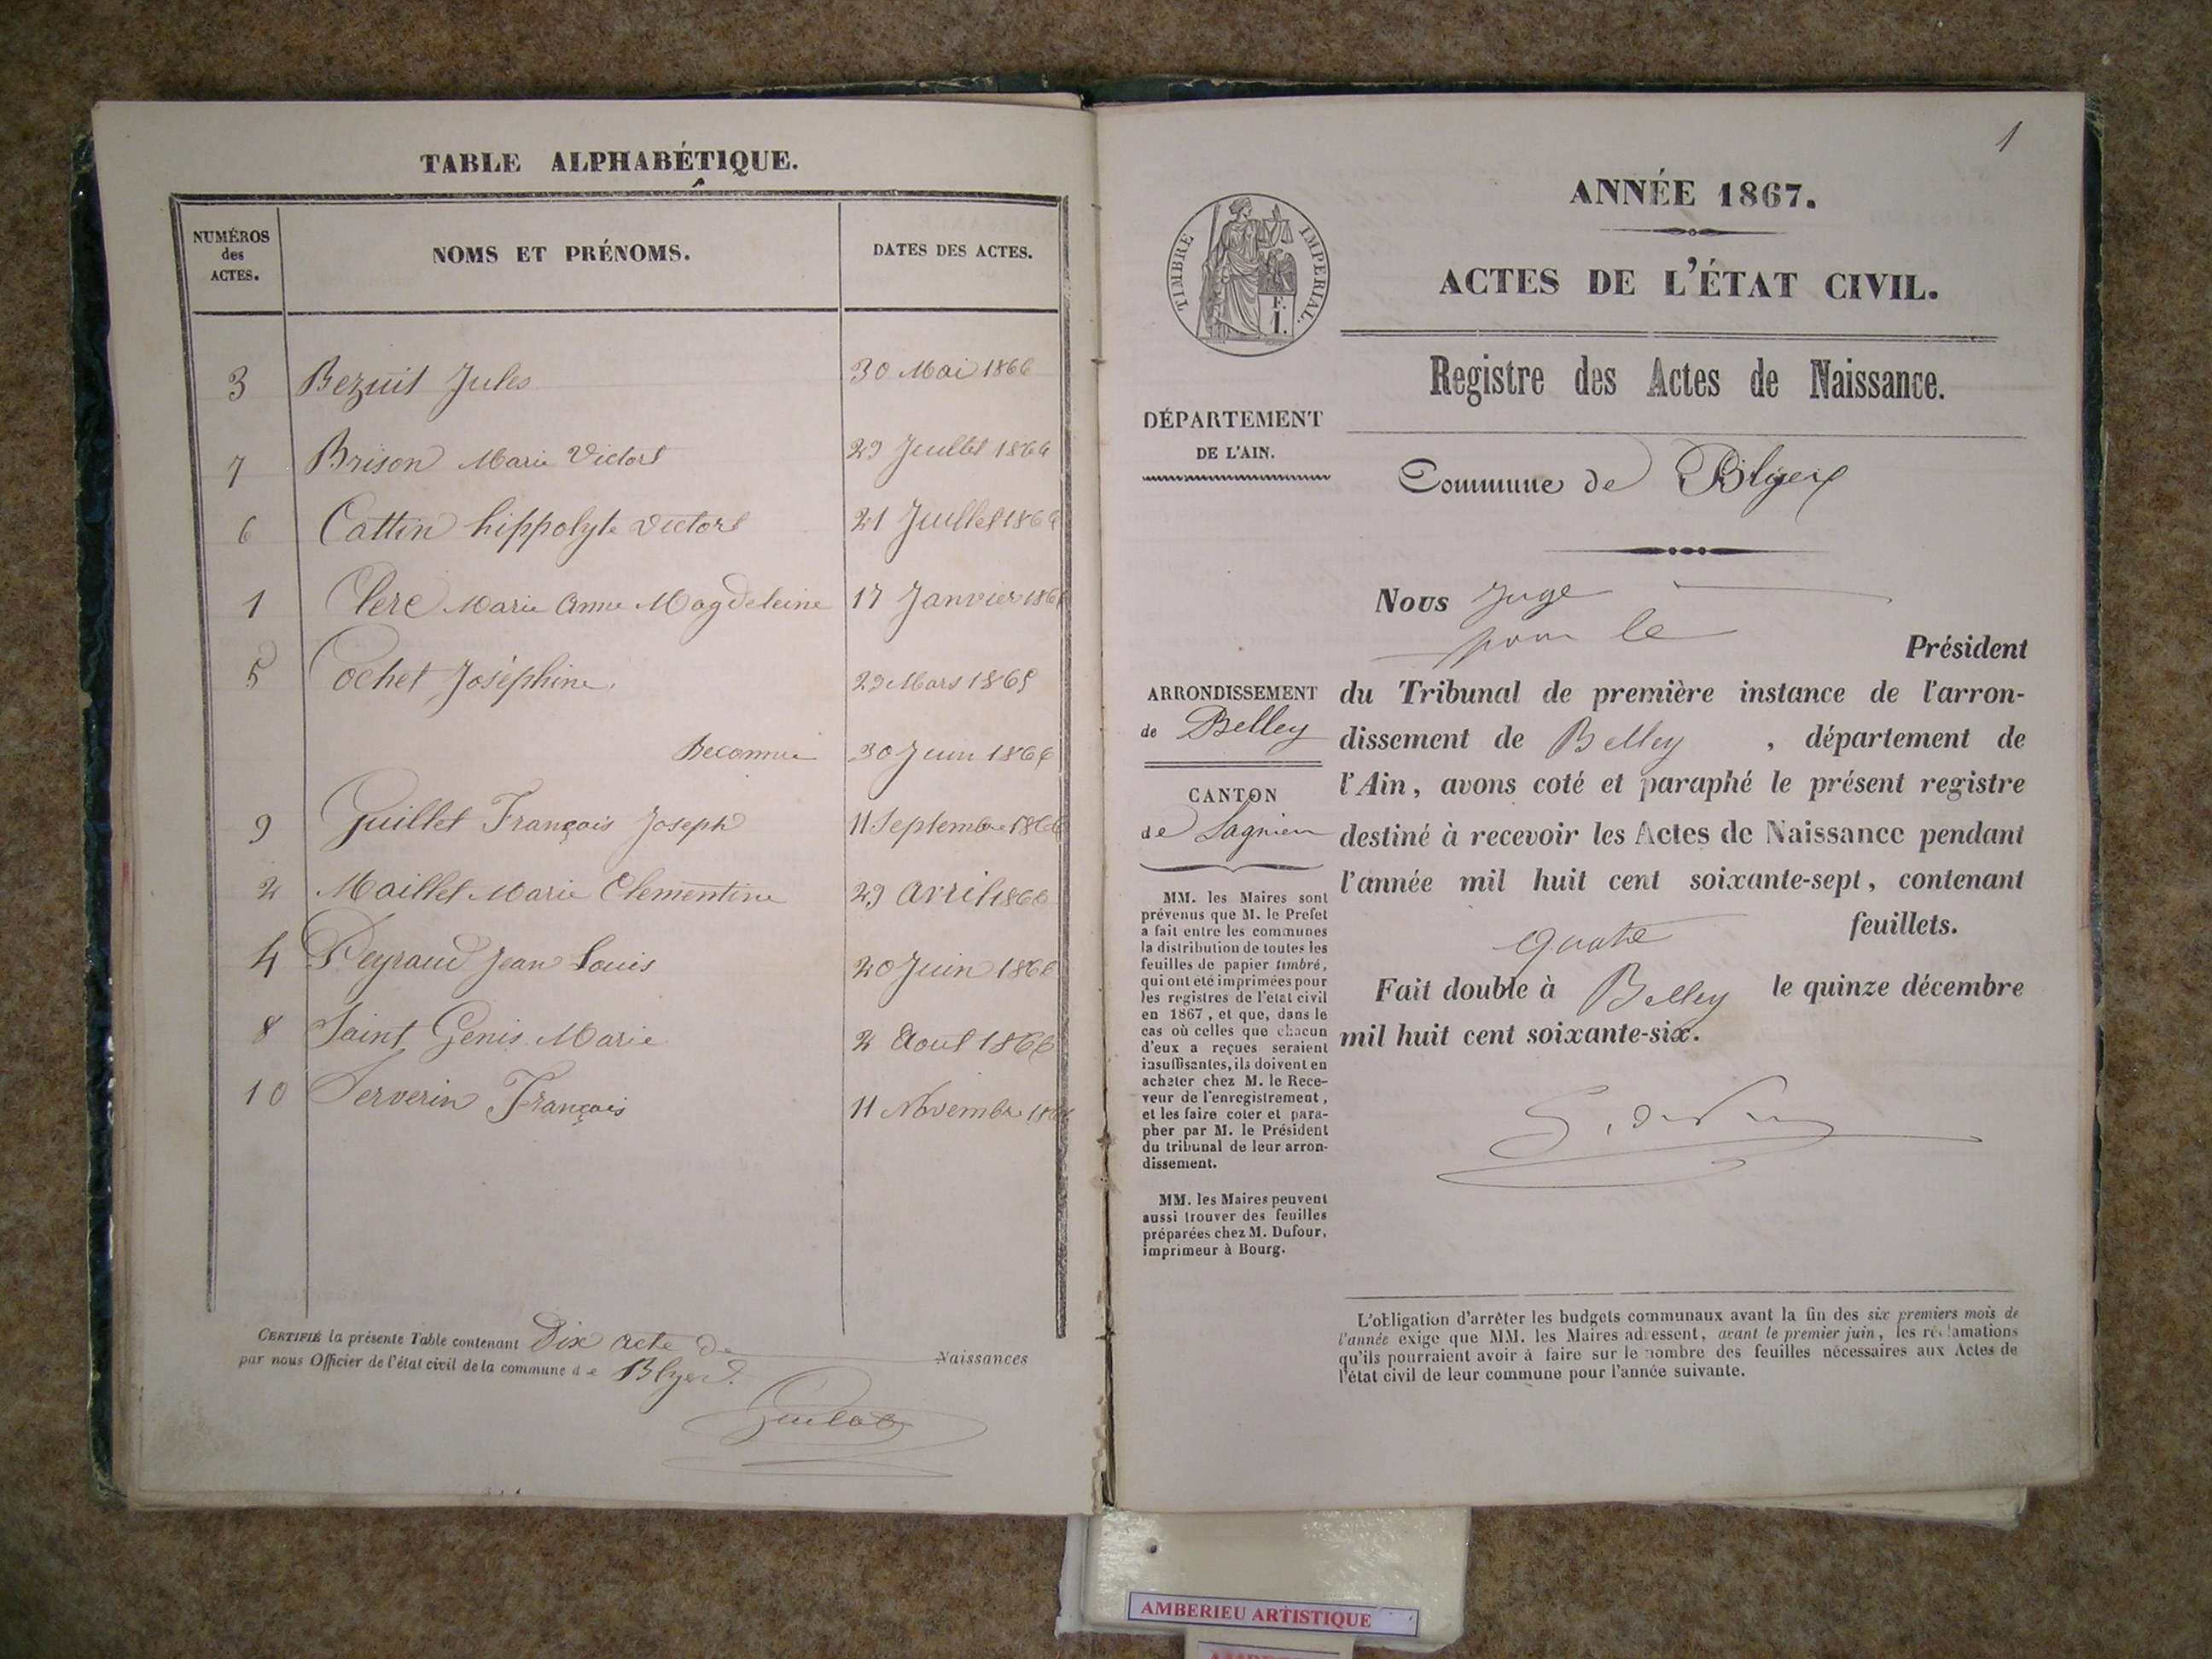 TABLE ALPHABÉTIQUE.
NUMÉROS des ACTES. NOMS ET PRÉNOMS. DATES DES ACTES.
3 Bezuit Jules 30 Mai 1866
7 Brison Marie Victors 29 Juillet 1866
6 Cattin hippolyte Victors 21 Juillet 1866
1 Clere Marie Anne Magdeleine 17 Janvier 1866
5 Cochet Joséphine. 29 Mars 1865
Reconnue 30 Juin 1866
9 Guillet François Joseph 11 Septembre 1866
2 Maillet Marie Clementine 29 avril 1866
4 Peyraud Jean Louis 20 Juin 1866
8 Saint Genis Marie 2 Aout 1866
10 Serverin François 11 Novembre 1866
CERTIFIÉ la présente Table contenant Dix acte de Naissances
par nous Officier de l'état civil de la commune de Blyes.
1
ANNÉE 1867.
TIMBRE IMPERIAL.
F.
I.
ACTES DE L'ÉTAT CIVIL.
Registre des Actes de Naissance.
DÉPARTEMENT
DE L'AIN.
Commune de Blyes
Nous Juge
pour le
Président
du Tribunal de première instance de l'arron-
dissement de Belley , département de
l'Ain, avons coté et paraphé le présent registre
destiné à recevoir les Actes de Naissance pendant
l'année mil huit cent soixante-sept, contenant
quatre feuillets.
Fait double à Belley le quinze décembre
mil huit cent soixante-six.
ARRONDISSEMENT
de Belley
CANTON
de Lagnieu
MM. les Maires sont
prévenus que M. le Prefet
a fait entre les communes
la distribution de toutes les
feuilles de papier timbré,
qui ont été imprimées pour
les registres de l'état civil
en 1867, et que, dans le
cas où celles que chacun
d'eux a reçues seraient
insuffisantes, ils doivent en
acheter chez M. le Rece-
veur de l'enregistrement,
et les faire coter et para-
pher par M. le Président
du tribunal de leur arron-
dissement.
MM. les Maires peuvent
aussi trouver des feuilles
préparées chez M. Dufour,
imprimeur à Bourg.
L'obligation d'arrêter les budgets communaux avant la fin des six premiers mois de
l'année exige que MM. les Maires adressent, avant le premier juin, les réclamations
qu'ils pourraient avoir à faire sur le nombre des feuilles nécessaires aux Actes de
l'état civil de leur commune pour l'année suivante.
AMBERIEU ARTISTIQUE